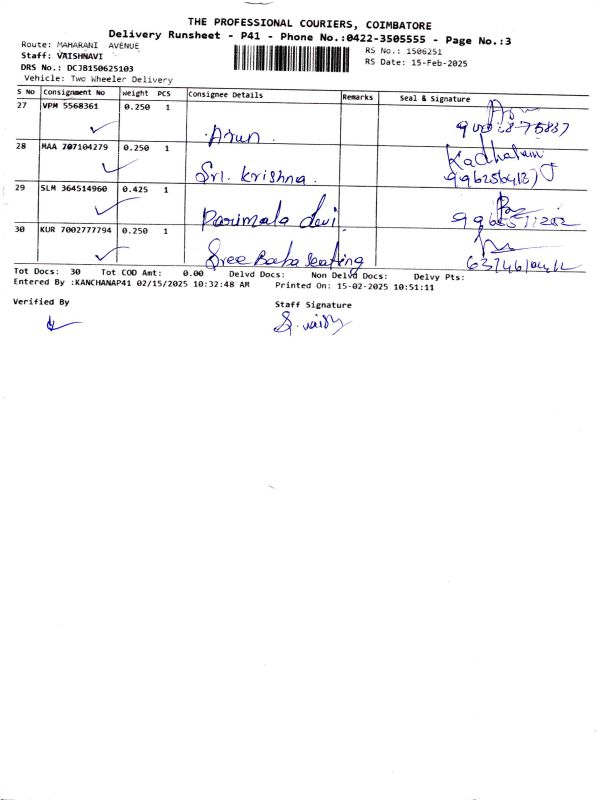 THE PROFESSIONAL COURIERS, COIMBATORE
Delivery Runsheet - P41 - Phone No.:0422-3505555 - Page No.:3
Route: MAHARANI AVENUE
RS No.: 1506251
Staff: VAISHNAVI
RS Date: 15-Feb-2025
DRS No.: DCJB150625103
Vehicle: Two Wheeler Delivery
S No Consignment No Weight PCS Consignee Details Remarks Seal & Signature
27 VPM 5568361 0.250 1
Arun
28 MAA 707104279 0.250 1
Sri. krishna.
29 SLM 364514960 0.425 1
Parimala devi
30 KUR 7002777794 0.250 1
Sree Baba seating
Tot Docs: 30 Tot COD Amt: 0.00 Delvd Docs: Non Delvd Docs: Delvy Pts:
Entered By :KANCHANAP41 02/15/2025 10:32:48 AM Printed On: 15-02-2025 10:51:11
Verified By
Staff Signature